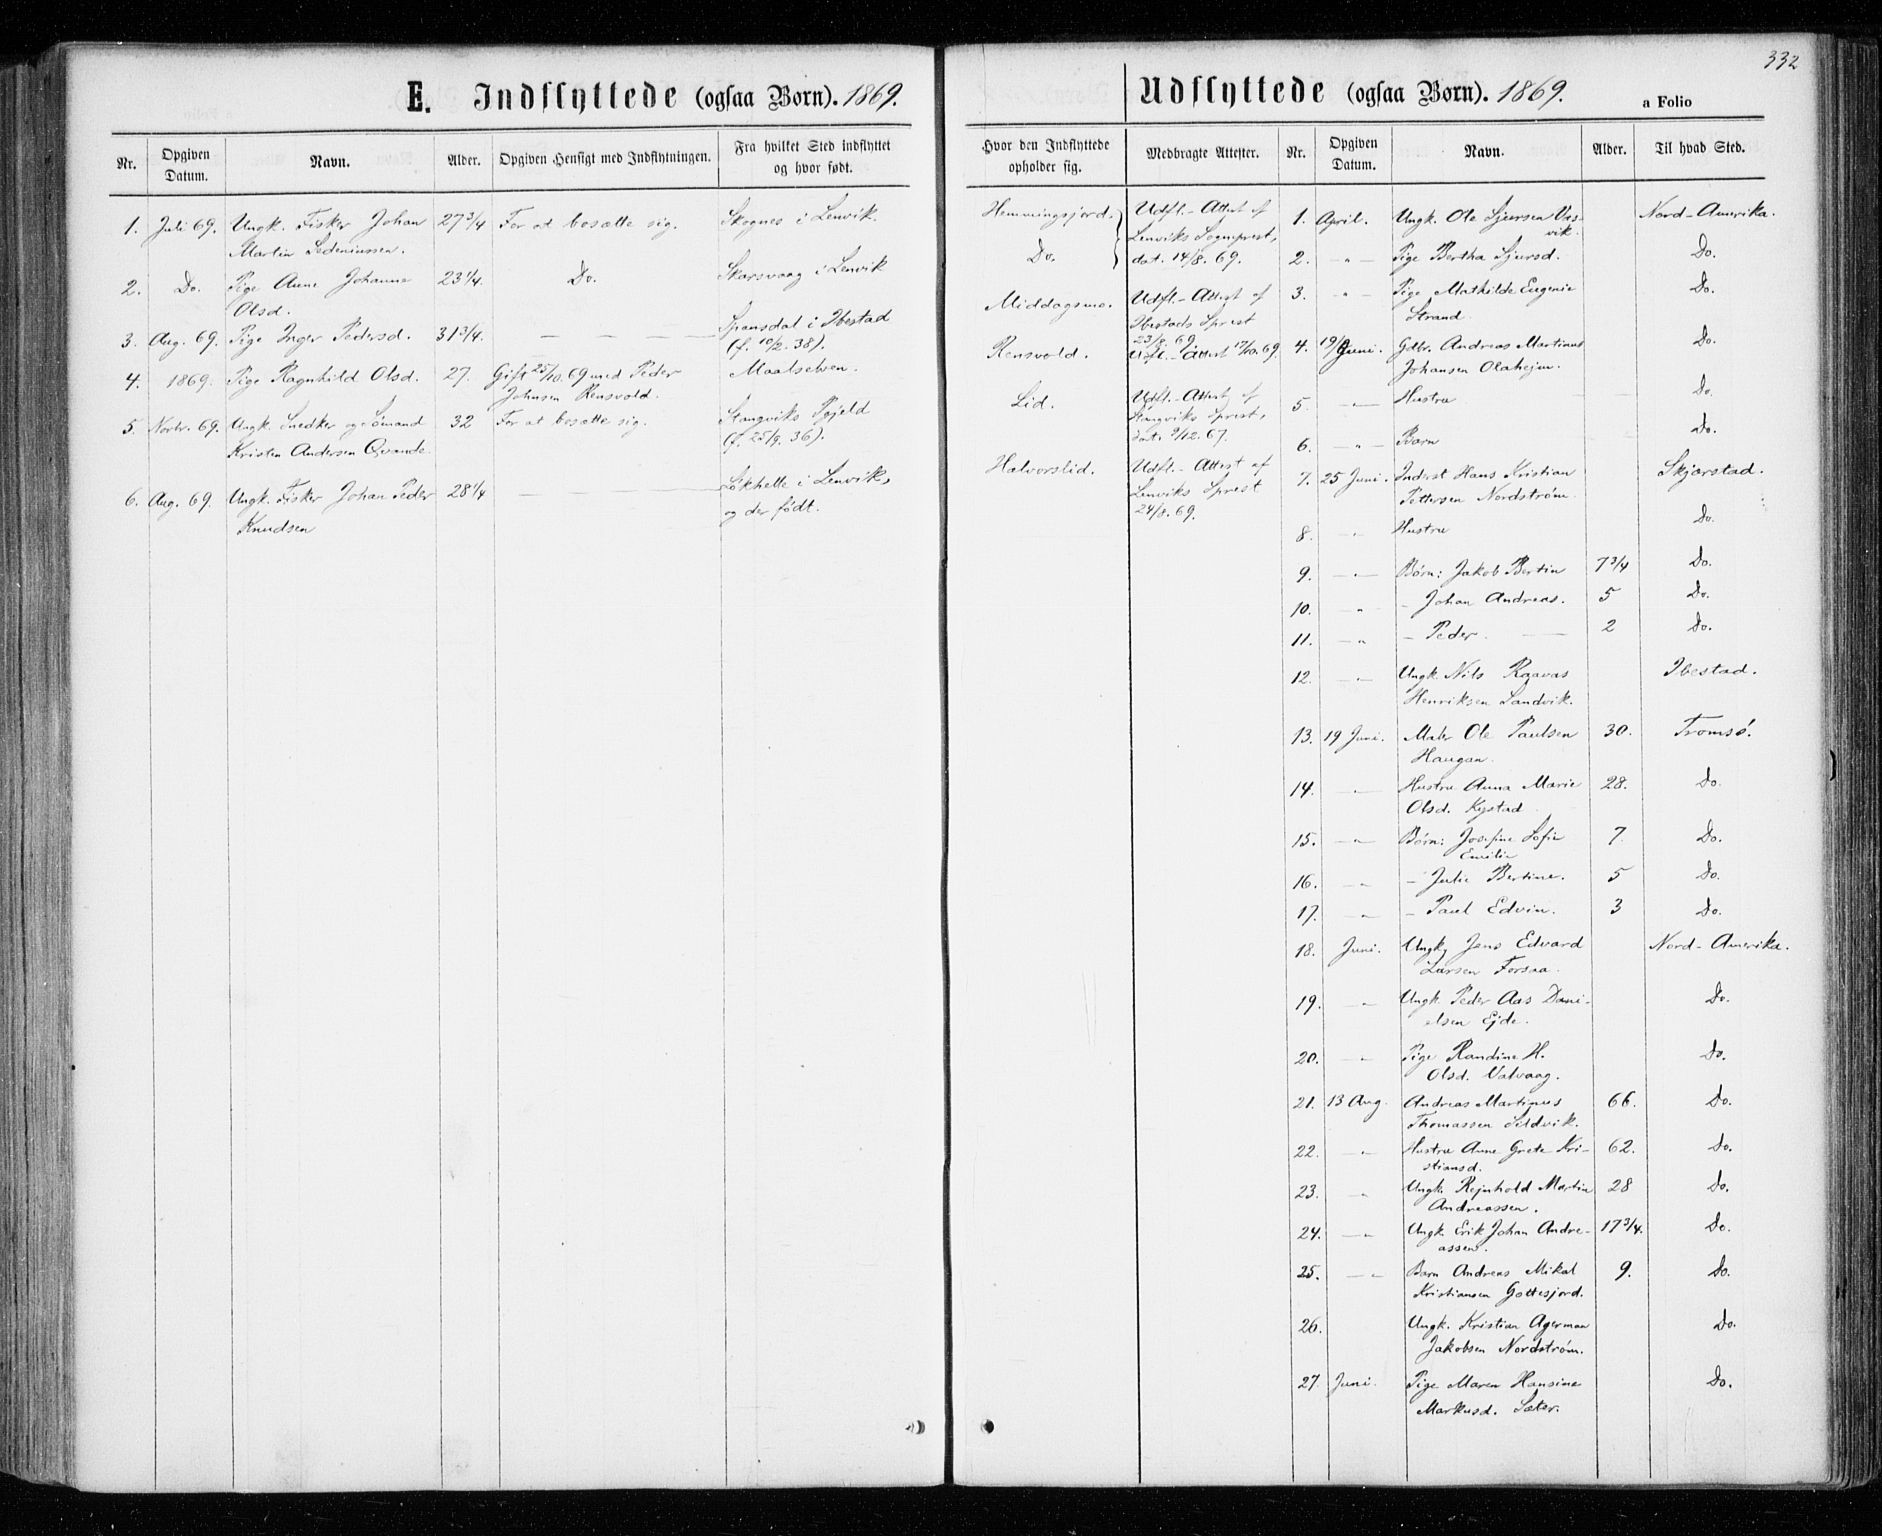 332
E. Indflyttede (ogsaa Børn). 1869.
Nr. Opgiven Datum. Navn. Alder. Opgiven Hensigt med Indflytningen. Fra hvilket Sted indflyttet og hvor født. Hvor den Indflyttede opholder sig. Medbragte Attester.
1. Juli 69. Ungk. Fisker Johan 27 3/4 For at bosætte sig. Skognes i Lenvik. Hemmingsjord. Udfl.-Attest af
Martin Sedeniussen. Lenviks Sogneprest,
2. Do. Pige Anne Johanne 23 1/4. Do. Skarsvaag i Lenvik Do. dat. 14/8. 69.
Olsd.
3. Aug. 69. Pige Inger Pedersd. 31 3/4. — — — — Spansdal i Ibestad Middagsmo. Udfl.-Attest af
(f. 10/2. 38). Ibestads Sprest
23/8. 69.
4. 1869. Pige Ragnhild Olsd. 27. Gift 25/10. 69 med Peder Maalselven. Rensvold. Udfl.-Attest 17/10. 69
Johnsen Rensvold.
5. Novbr. 69. Ungk. Snedker og Sømand 32 For at bosætte sig. Stangviks Pgjeld Lid. Udfl.-Attest af
Kristen Andersen Qvande. (f. 25/9. 36). Stangviks Sprest,
dat. 9/12. 67.
6. Aug. 69. Ungk. Fisker Johan Peder 28 1/4 — — — Løkhelle i Lenvik, Halvorslid. Udfl.-Attest af
Knudsen og der født. Lenviks Sprest
24/8. 69.
Udflyttede (ogsaa Børn). 1869. a Folio
Nr. Opgiven Datum. Navn. Alder. Til hvad Sted.
1. April. Ungk. Ole Sjursen Vas- Nord-Amerika.
vik.
2. — " — Pige Bertha Sjursd. Do.
3. — " — Pige Mathilde Eugenie Do.
Strand.
4. 19/ Juni. Gdbr. Andreas Martinus Do.
Johansen Olahejm.
5. — " — Hustru Do.
6. — " — Barn Do.
7. 25 Juni. Inderst Hans Kristian Skjærstad.
Pettersen Nordstrøm.
8. — " — Hustru Do.
9. — " — Børn: Jakob Bertin 7 3/4 Do.
10. — " — – Johan Andreas. 5 Do.
11. — " — – Peder. — 2 Do.
12. — " — Ungk. Nils Ragvas Ibestad.
Henriksen Sandvik.
13. 19 Juni. Maler Ole Paulsen 30. Tromsø.
Haugan.
14. — " — Hustru Anna Marie 28. Do.
Olsd. Kystad
15. — " — Børn: Josefine Sofie 7. Do.
Emilie
16. — " — – Julie Bertine. 5 Do.
17. — " — – Paul Edvin. 3 Do.
18. Juni. Ungk. Jens Edvard Nord-Amerika.
Larsen Forsaa.
19. — " — Ungk. Peder Aas Dani- Do.
elsen Ejde.
20. — " — Pige Randine H. Do.
Olsd. Valvaag.
21. 13 Aug. Andreas Martinus 66. Do.
Thomassen Sildvik.
22. — " — Hustru Anne Grete Kri- 62. Do.
stiansd.
23. — " — Ungk. Rejnhold Martin 28 Do.
Andreassen.
24. — " — Ungk. Erik Johan Andre- 17 3/4. Do.
assen.
25. — " — Barn Andreas Mikal 9. Do.
Kristiansen Gottesjord.
26. Ungk. Kristian Agerman Do.
Jakobsen Nordstrøm.
27. Juni. Pige Maren Hansine Do.
Markusd. Sæter.